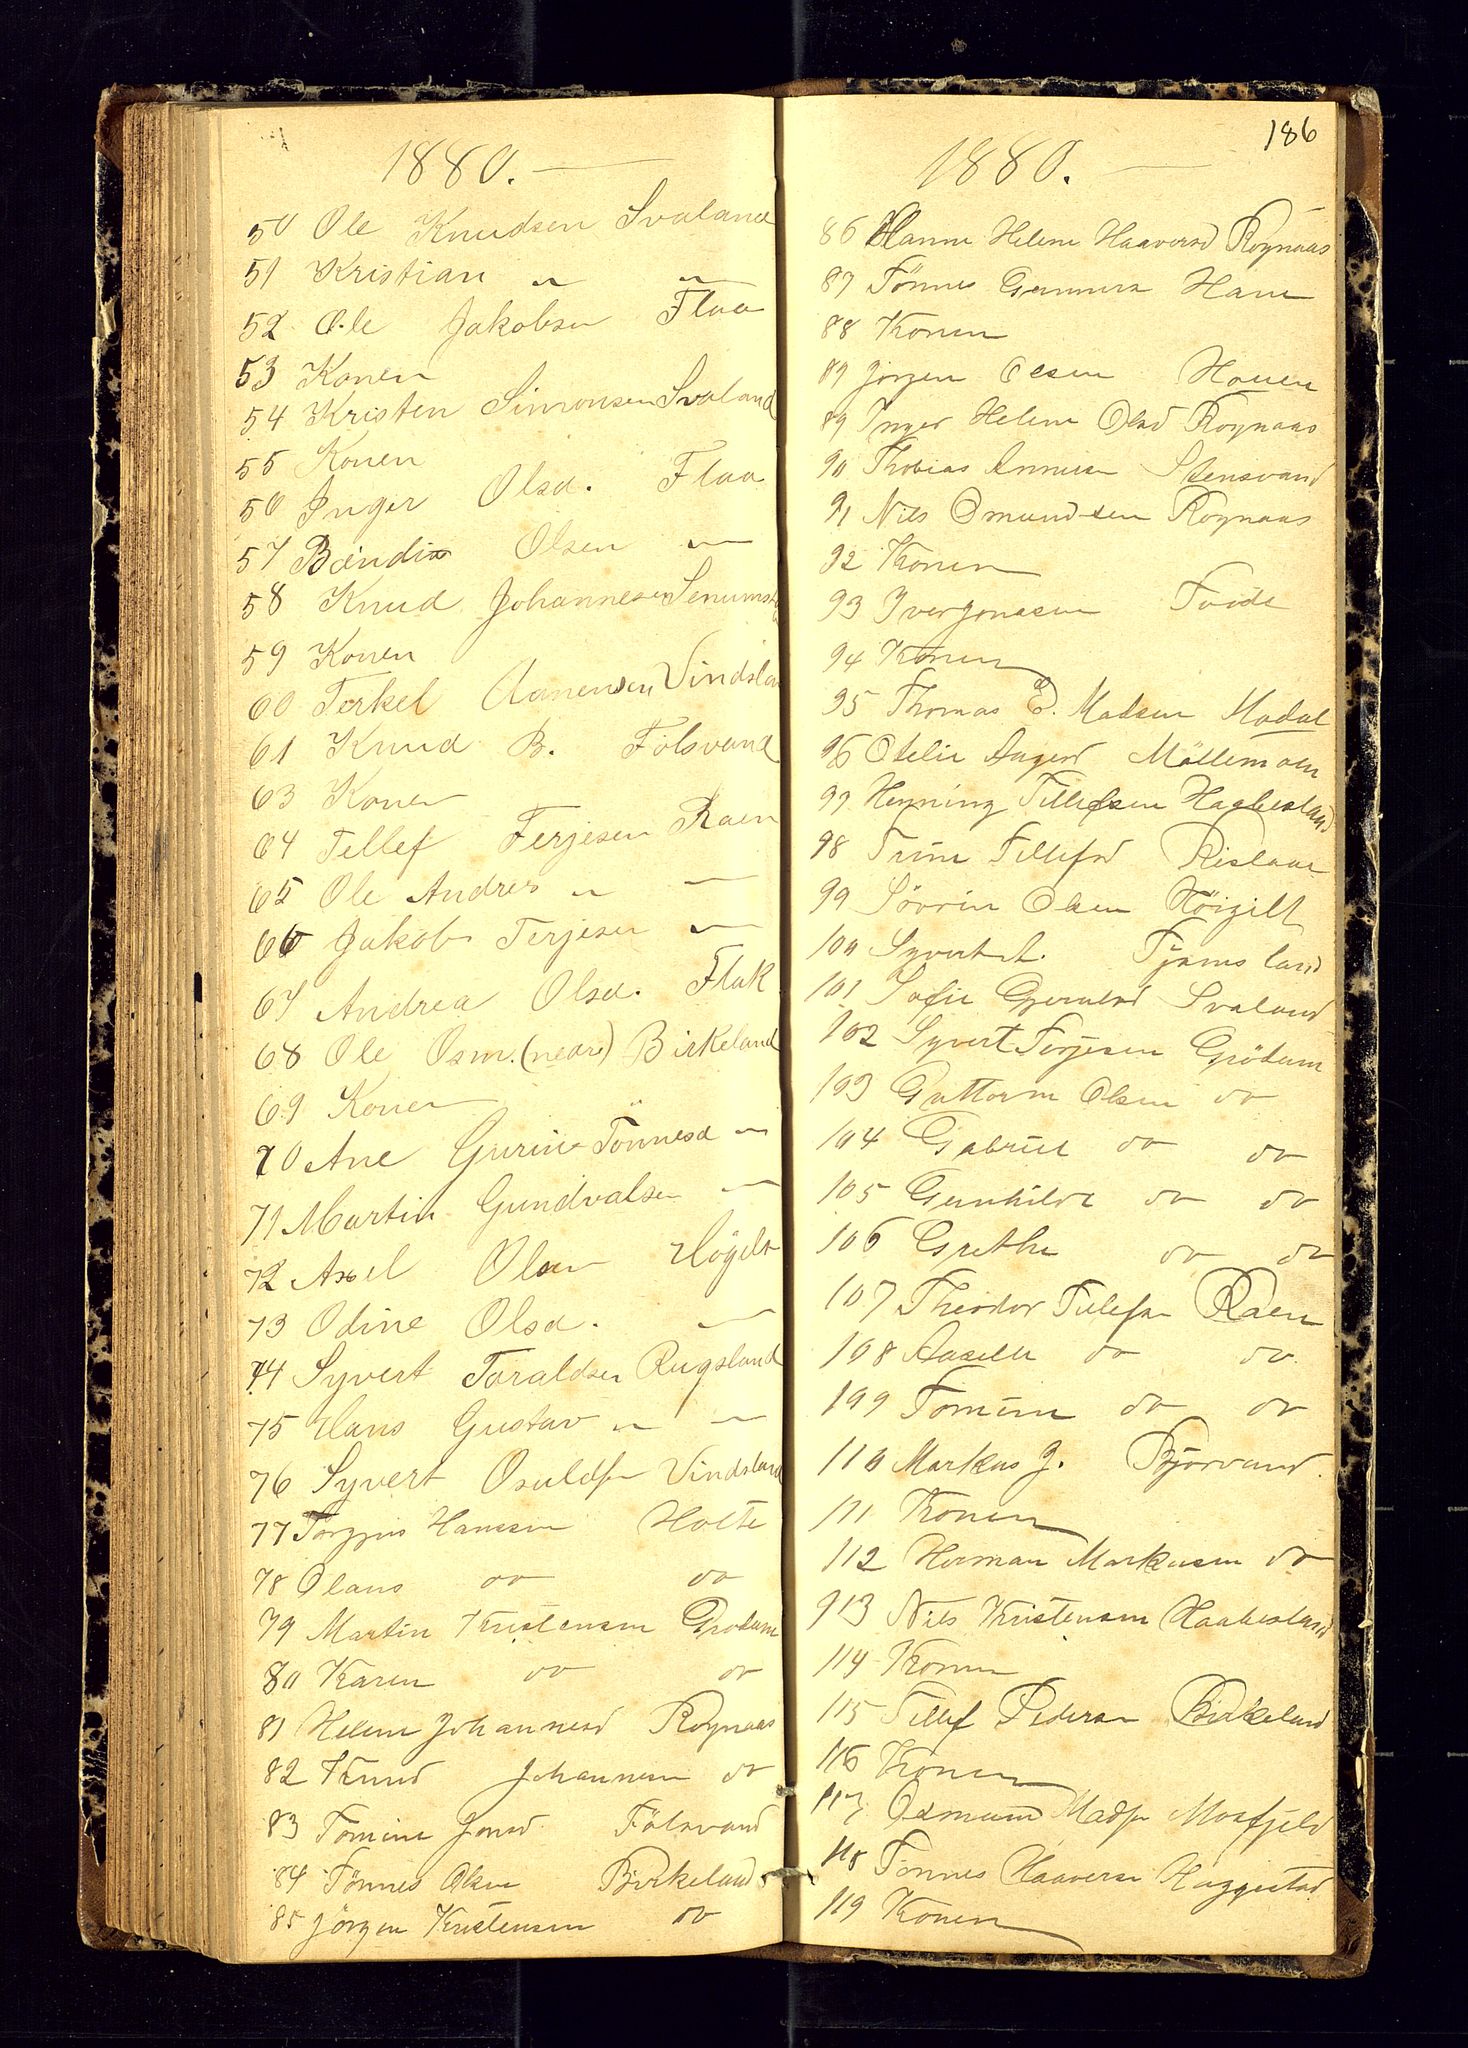 1880.
50 Ole Knudsen Svaland
51 Kristian " "
52 Ole Jakobsen Flaa
53 Konen
54 Kristen Simonsen Svaland
55 Konen
56 Inger Olsd. Flaa
57 Bendix Olsen "
58 Knud Johannesen Senumst
59 Konen
60 Terkel Aanensen Vindsla
61 Knud B. Fölsvand
63 Konen
64 Tellef Terjesen Raen
65 Ole Andres " "
66 Jakob Terjesen "
67 Andrea Olsd. Flak
68 Ole Osm. (nedre) Birkeland
69 Konen
70 Ane Gurine Tönnesd "
71 Martin Gundvalsen "
72 Axel Olsen Högelt
73 Odine Olsd. "
74 Syvert Taraldsen Rugsland
75 Hans Gustav " "
76 Syvert Osuldsen Vindsland
77 Torgjus Hanssen Holte
78 Olaus do do
79 Martin Kristensen Grödum
80 Karen do do
81 Helene Johannesd Roynaas
82 Knud Johannesen do
83 Tomine Jensd Fölsvand
84 Tönnes Olsen Birkeland
85 Jörgen Kristensen do
186
1880.
86 Hanne Helene Haaversd Roynaas
87 Tönnes Gunners Haue
88 Konen
89 Jörgen Olsen Hauen
89 Inger Helene Olsd Roynaas
90 Thobias Stensvand
91 Nils Omundsen Roynaas
92 Konen
93 Iver Jonasen
94 Konen
95 Thomas E. Madsen Modal
96 Otelie Aagesd Möllemoen
97 Henning Tellefsen Haabesland
98 Trine Tellefsd Rislaae
99 Sövrin Olsen Höigilt
100 Syvert A. Tjomsland
101 Sofie Gjeruldsd Svaland
102 Syvert Terjesen Grödum
103 Guttorm Olsen do
104 Gabriel do do
105 Gunhilde do do
106 Grethe do do
107 Theodor Tellefsen Raen
108 Aaselle do do
109 Tomine do do
110 Markus J. Bjorvand.
111 Konen
112 Herman Markusen do
113 Nils Kristensen Haabesland
114 Konen
115 Tellef Pedersen Birkeland
116 Konen
117 Osmund Madsen Mosfjeld
118 Tönnes Haaversen Haggestad
119 Konen